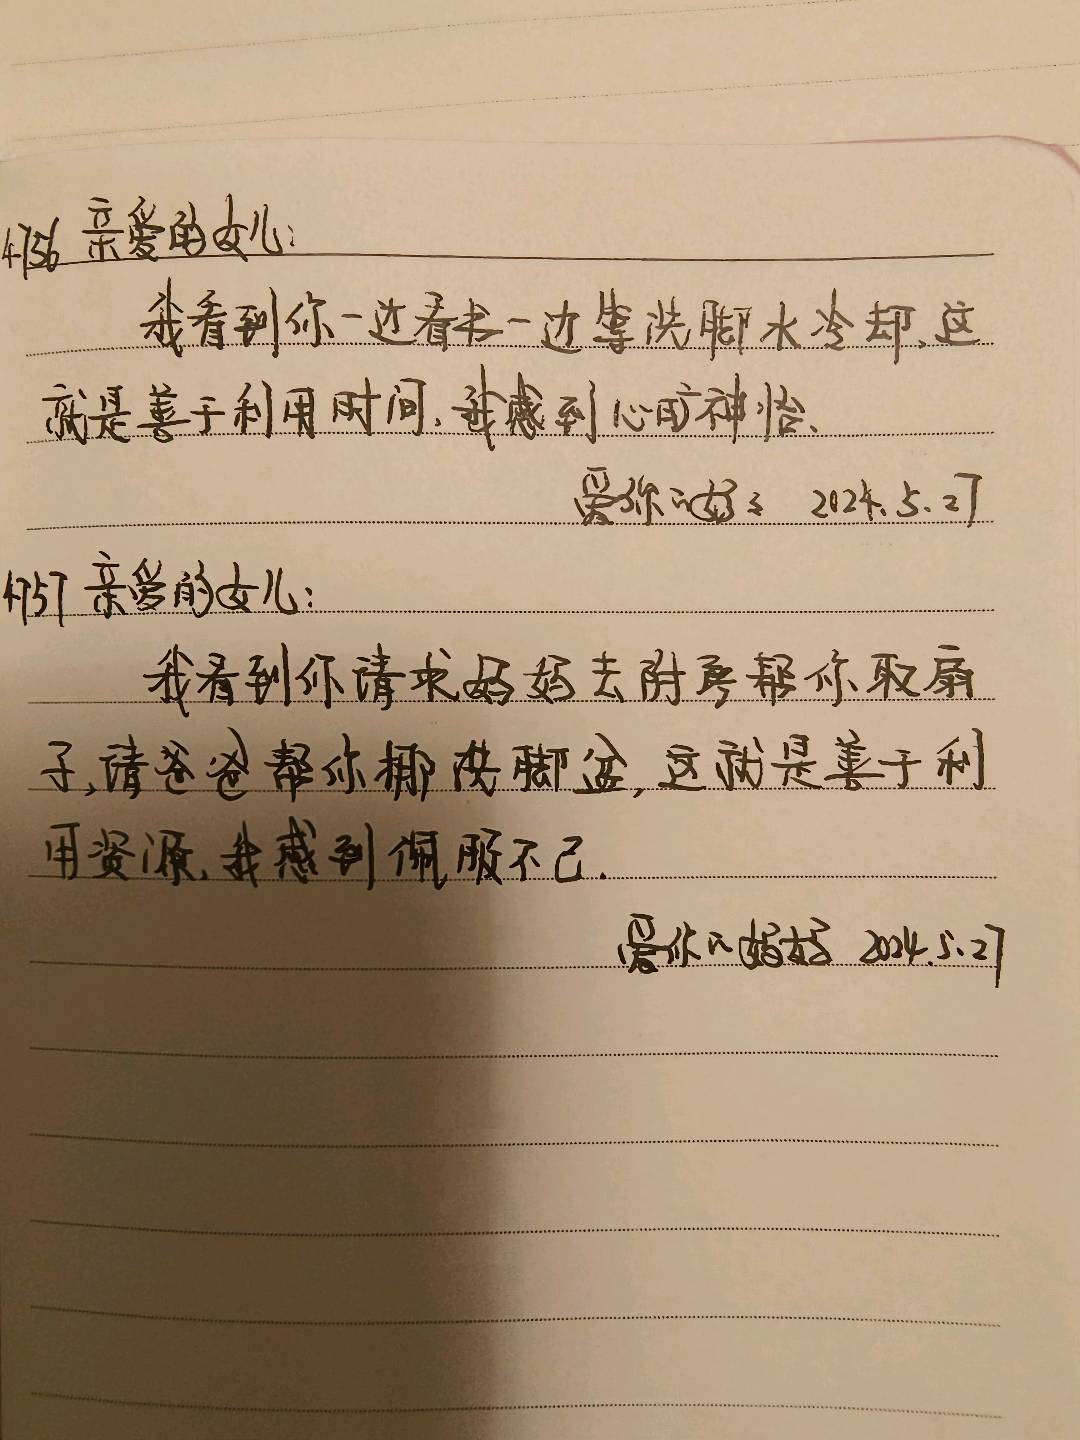 4756 亲爱的女儿：
我看到你一边看书一边等洗脚水冷却，这
就是善于利用时间，我感到心旷神怡、
爱你的妈妈 2024.5.27
4757 亲爱的女儿：
我看到你请求妈妈去附房帮你取扇
子，请爸爸帮你挪洗脚盆，这就是善于利
用资源，我感到佩服不已.
爱你的妈妈 2024.5.27